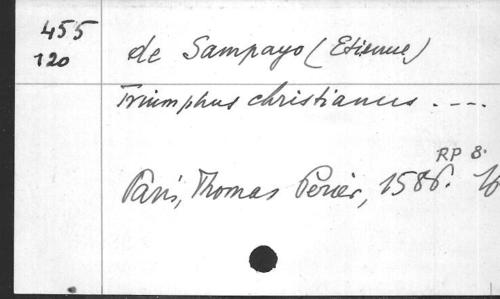 455
120
de Sampayo (Etienne)
Triumphus christianus . ---
RP 8.
Paris, Thomas Perier, 1586.